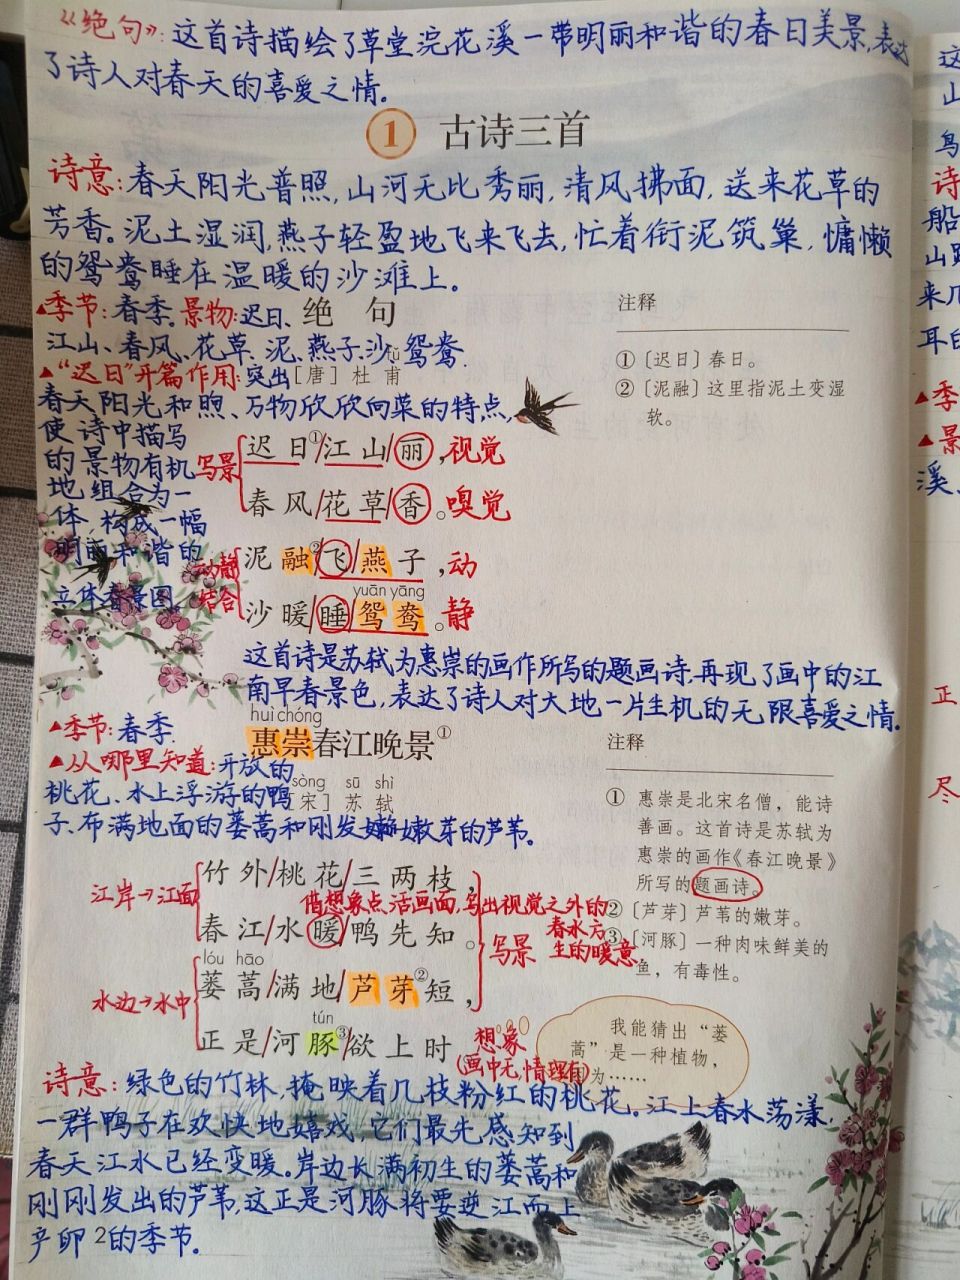 《绝句》:这首诗描绘了草堂浣花溪一带明丽和谐的春日美景,表达
了诗人对春天的喜爱之情。
1 古诗三首
诗意:春天阳光普照,山河无比秀丽,清风拂面,送来花草的
芳香。泥土湿润,燕子轻盈地飞来飞去,忙着衔泥筑巢,慵懒
的鸳鸯睡在温暖的沙滩上。
▲季节:春季.景物:迟日、
江山、春风、花草、泥、燕子、沙、鸳鸯.
绝 句
fǔ
[唐] 杜 甫
▲"迟日"开篇作用:突出
春天阳光和煦、万物欣欣向荣的特点,
使诗中描写
的景物有机
地组合为一
体,构成一幅
明丽和谐的
立体春景图.
写景
迟日①/江山/丽,视觉
春风/花草/香。嗅觉
动静
结合
泥融②/飞/燕子,动
yuān yāng
沙暖/睡/鸳鸯。静
注释
①〔迟日〕春日。
②〔泥融〕这里指泥土变湿
软。
这首诗是苏轼为惠崇的画作所写的题画诗.再现了画中的江
南早春景色,表达了诗人对大地一片生机的无限喜爱之情.
huì chóng
惠崇春江晚景①
sòng sū shì
[宋] 苏 轼
▲季节:春季.
▲从哪里知道:开放的
桃花、水上浮游的鸭
子、布满地面的蒌蒿和刚发嫩芽的芦苇。
江岸→江面
竹外/桃花/三两枝,
借想象点活画面,写出视觉之外的
春江/水/暖/鸭先知。
写景
春水方
生的暖意
lóu hāo
水边→水中
蒌蒿/满地/芦芽②短,
tún
正是/河豚③欲上时。
想象
(画中无,情理有)
注释
① 惠崇是北宋名僧,能诗
善画。这首诗是苏轼为
惠崇的画作《春江晚景》
所写的题画诗。
②〔芦芽〕芦苇的嫩芽。
③〔河豚〕一种肉味鲜美的
鱼,有毒性。
我能猜出"蒌
蒿"是一种植物,
因为……
诗意:绿色的竹林,掩映着几枝粉红的桃花。江上春水荡漾.
一群鸭子在欢快地嬉戏,它们最先感知到
春天江水已经变暖。岸边长满初生的蒌蒿和
刚刚发出的芦苇,这正是河豚将要逆江而上
产卵的季节.
2
这
山
鸟
诗
船
山路
来几
耳的
▲季
▲景
溪、
正
尽